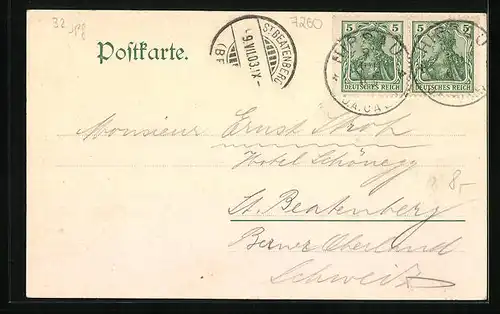 32 jpg
7260
Postkarte.
ST. BEATENBERG
9.VII.03.IX-
(BE
5 5
DEUTSCHES REICH
5 5
DEUTSCHES REICH
Monsieur Ernst
Hotel Schönegg
8,-
St. Beatenberg
Berner Oberland
Schweiz